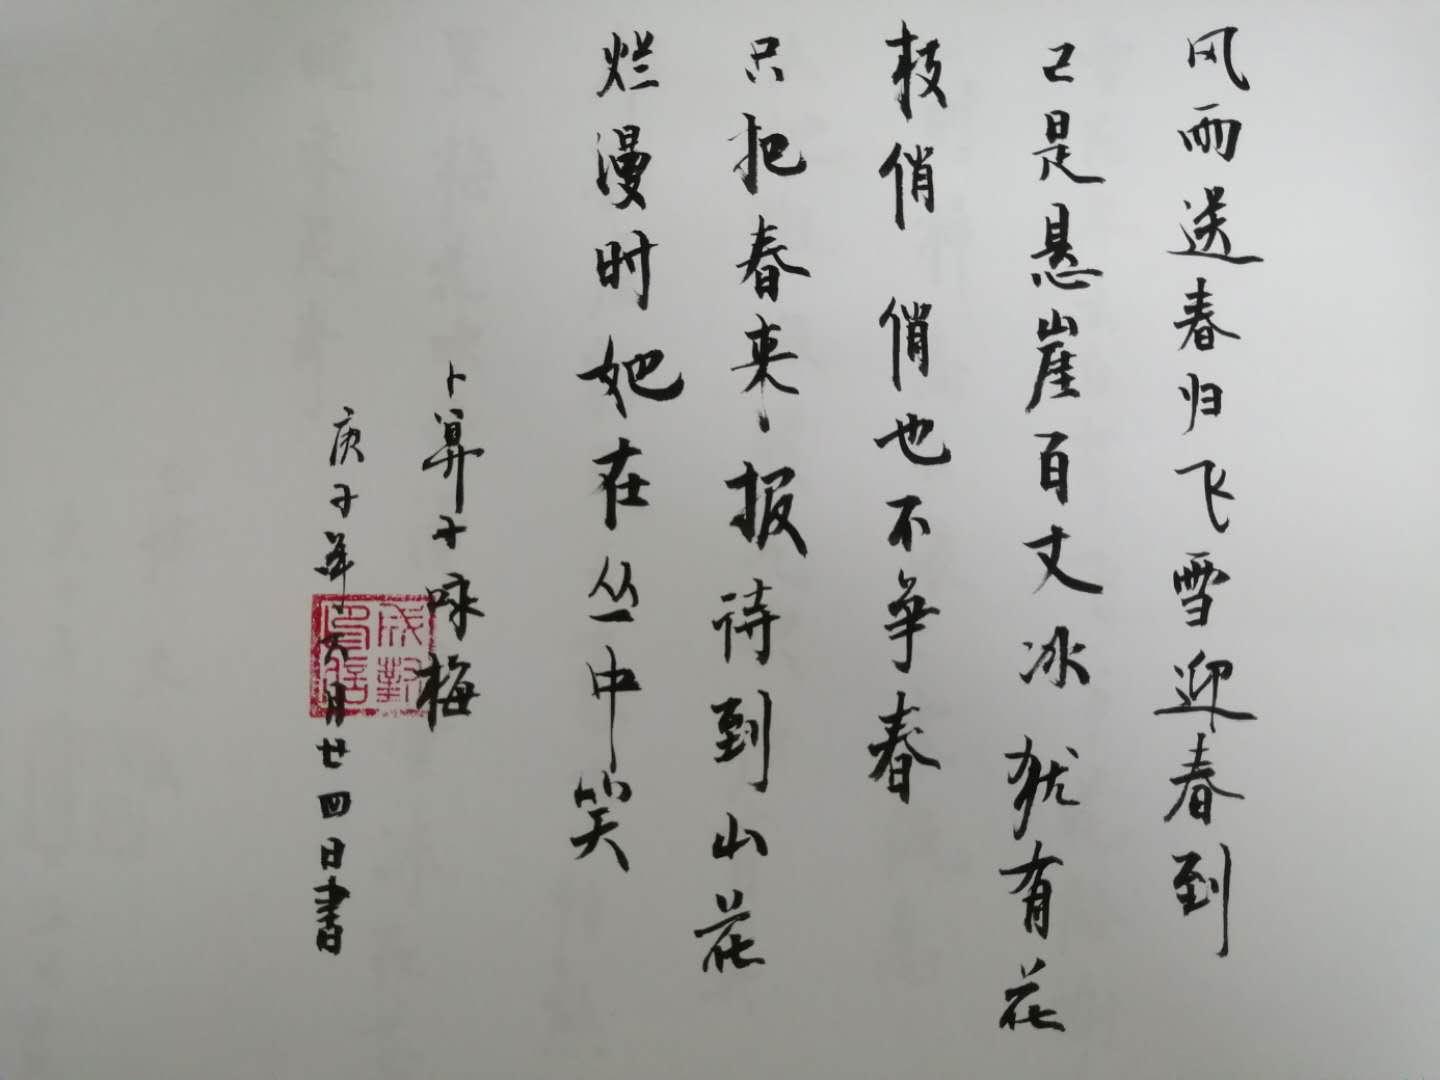 风雨送春归飞雪迎春到
已是悬崖百丈冰犹有花
枝俏俏也不争春
只把春来报待到山花
烂漫时她在丛中笑
卜算子咏梅
庚子年六月廿四日書